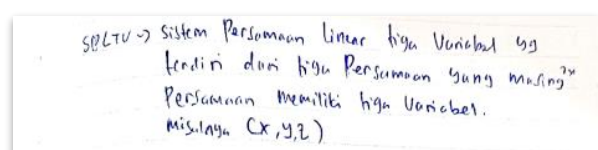 SPLTV -> Sistem Persamaan linear tiga Variabel yg
terdiri dari tiga Persamaan yang masing²x
Persamaan memiliki tiga Variabel.
misalnya (x,y,z)